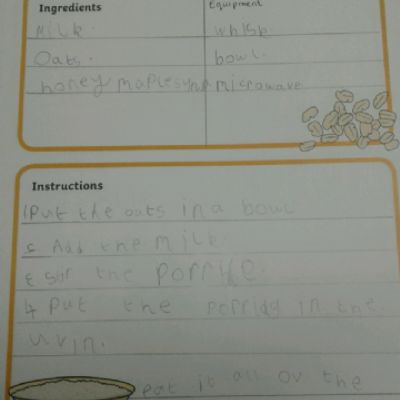 Ingredients Equipment
Milk. whisk
Oats. bowl.
honey maplesyrup microwave
Instructions
1 Put the oats in a bowl
2 Add the milk.
stir the porrije.
4 Put the porridg in the
uvin.
eat it all ov the